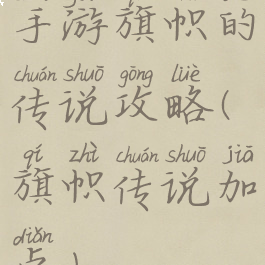 手游旗帜的
chuán shuō gōng lüè
传说攻略(
qí zhì chuán shuō jiā
旗帜传说加
diǎn
点)